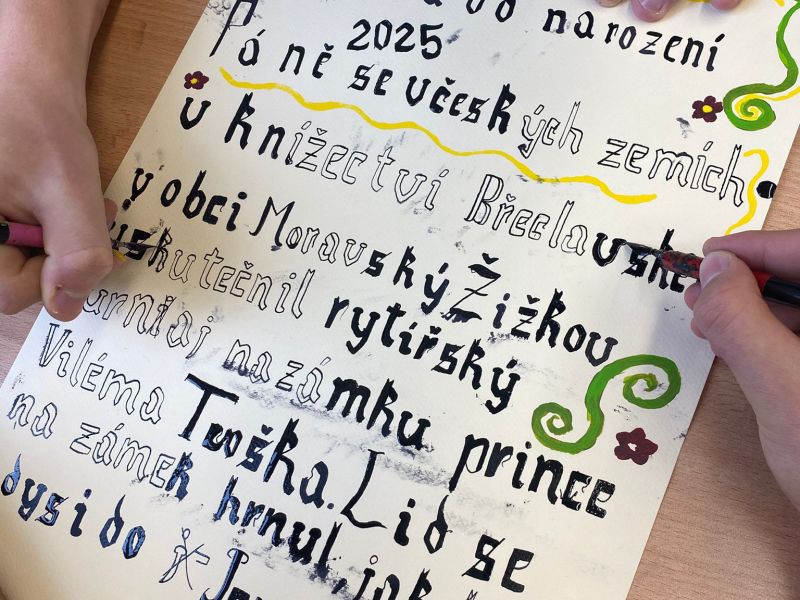 do narození
Páně 2025 se v českých zemích
v knížectví Břeclavské
v obci Moravský Žižkov
uskutečnil rytířský
turniaj na zámku prince
Viléma Tvoška. Lid se
na zámek hrnul, jak
dysi do